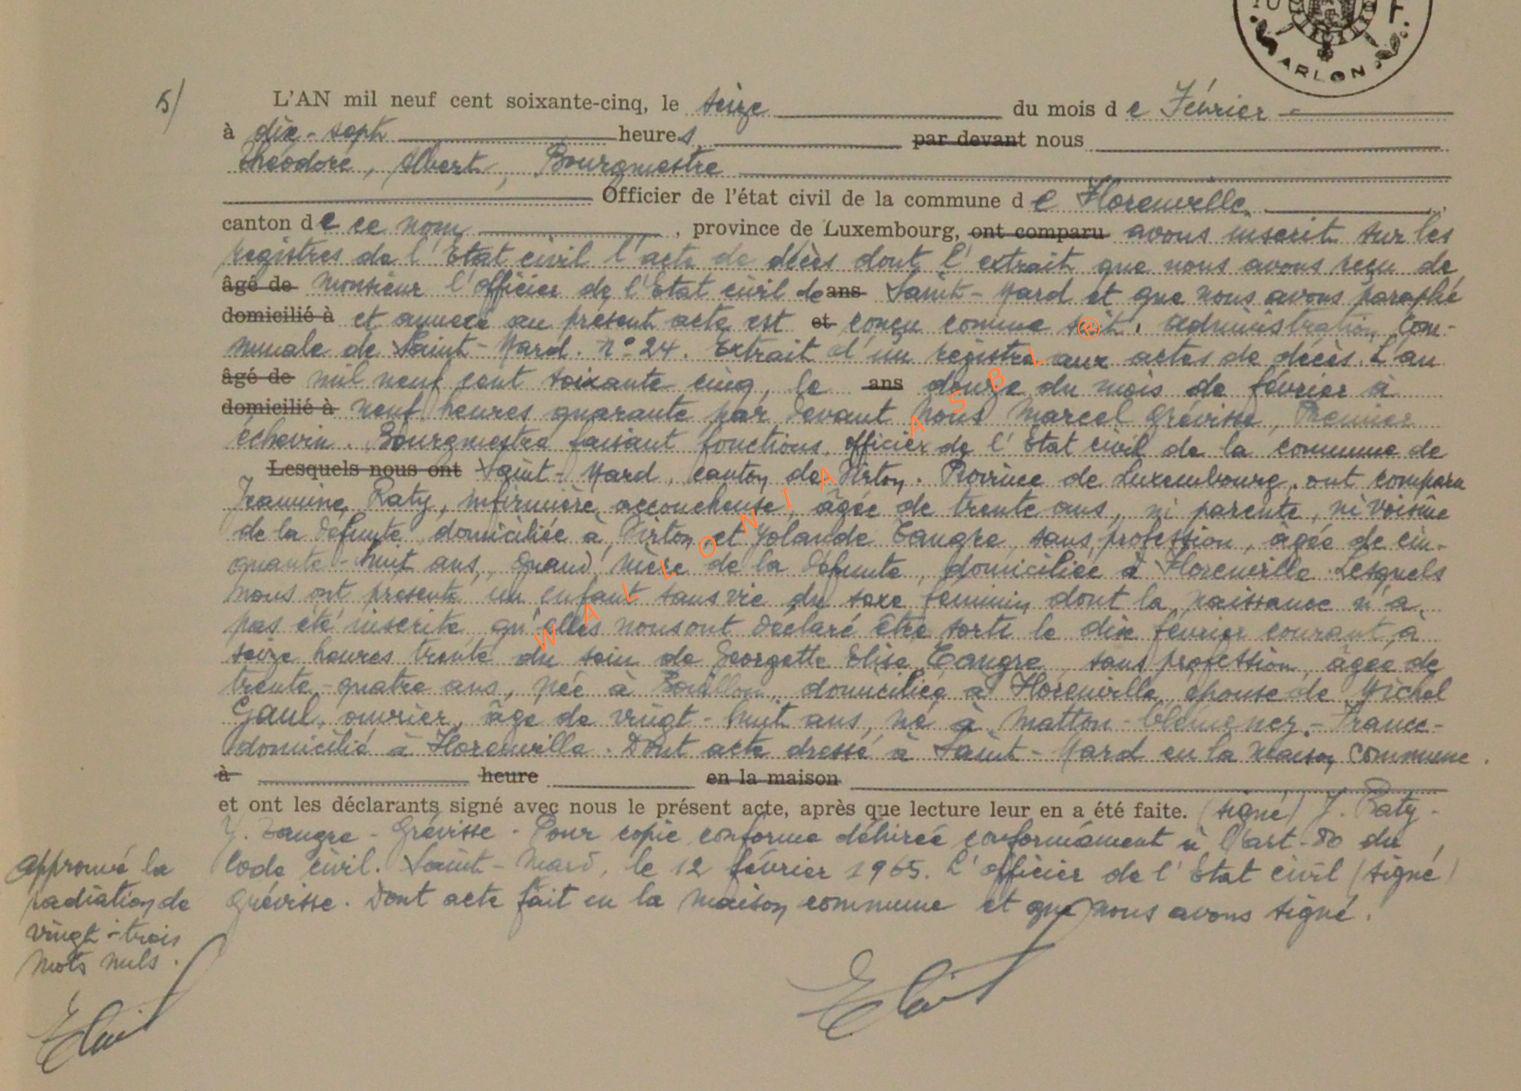 ARLON
5/
L'AN mil neuf cent soixante-cinq, le seize du mois de Février
à dix-sept heures, par devant nous
Théodore, Albert, Bourgmestre
Officier de l'état civil de la commune de Florenville,
canton de ce nom, province de Luxembourg, ont comparu avons inscrit sur les
registres de l'Etat civil l'acte de décès dont l'extrait que nous avons reçu de
âgé de Monsieur l'officier de l'Etat civil de ans Saint-Mard et que nous avons paraphé
domicilié à et annexé au présent acte est et conçu comme suit. Administration Com-
munale de Saint-Mard. n° 24. Extrait d'un registre aux actes de décès. L'an
âgé de mil neuf cent soixante cinq, le ans douze du mois de février à
domicilié à neuf heures quarante par devant nous Marcel Grévisse, Premier
échevin. Bourgmestre faisant fonctions, officier de l'Etat civil de la commune de
Lesquels nous ont Saint-Mard, canton de Virton. Province de Luxembourg, ont comparu
Jeannine Raty, infirmière accoucheuse, âgée de trente ans, ni parente, ni voisine
de la défunte, domiciliée à Virton et Yolande Tangre, sans profession, âgée de cin-
quante-huit ans, grand'mère de la défunte, domiciliée à Florenville. Lesquels
nous ont présenté un enfant sans vie du sexe féminin dont la naissance n'a
pas été inscrite qu'elles nous ont déclaré être sorti le dix février courant, à
seize heures trente du sein de Georgette Elise Tangre, sans profession, âgée de
trente-quatre ans, née à Bouillon, domiciliée à Florenville, épouse de Michel
Gaul, ouvrier, âgé de vingt-huit ans, né à Matton-Clémency - France -
domicilié à Florenville. Dont acte dressé à Saint-Mard en la Maison Commune.
à heure en la maison
et ont les déclarants signé avec nous le présent acte, après que lecture leur en a été faite. (signé) J. Raty -
Y. Tangre - Grévisse - Pour copie conforme délivrée conformément à l'art. 80 du
Code civil. Saint-Mard, le 12 février 1965. L'officier de l'Etat civil (signé)
Grévisse. Dont acte fait en la maison commune et que nous avons signé.
Approuvé la
radiation de
vingt-trois
mots nuls.
WALLONIA ASBL ®